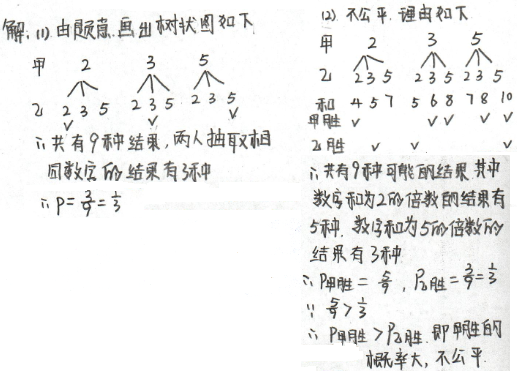 解:(1)由题意.画出树状图如下
甲 2 3 5
乙 2 3 5 2 3 5 2 3 5
∴共有9种结果,两人抽取相
同数字的结果有3种
∴P=3/9=1/3
(2).不公平.理由如下
甲 2 3 5
乙 2 3 5 2 3 5 2 3 5
和 4 5 7 5 6 8 7 8 10
甲胜 ∨ ∨ ∨ ∨ ∨
乙胜 ∨ ∨ ∨
∴共有9种可能的结果.其中
数字和为2的倍数的结果有
5种.数字和为5的倍数的
结果有3种
∴P甲胜=5/9,P乙胜=3/9=1/3
∵5/9>1/3
∴P甲胜>P乙胜.即甲胜的
概率大,不公平.